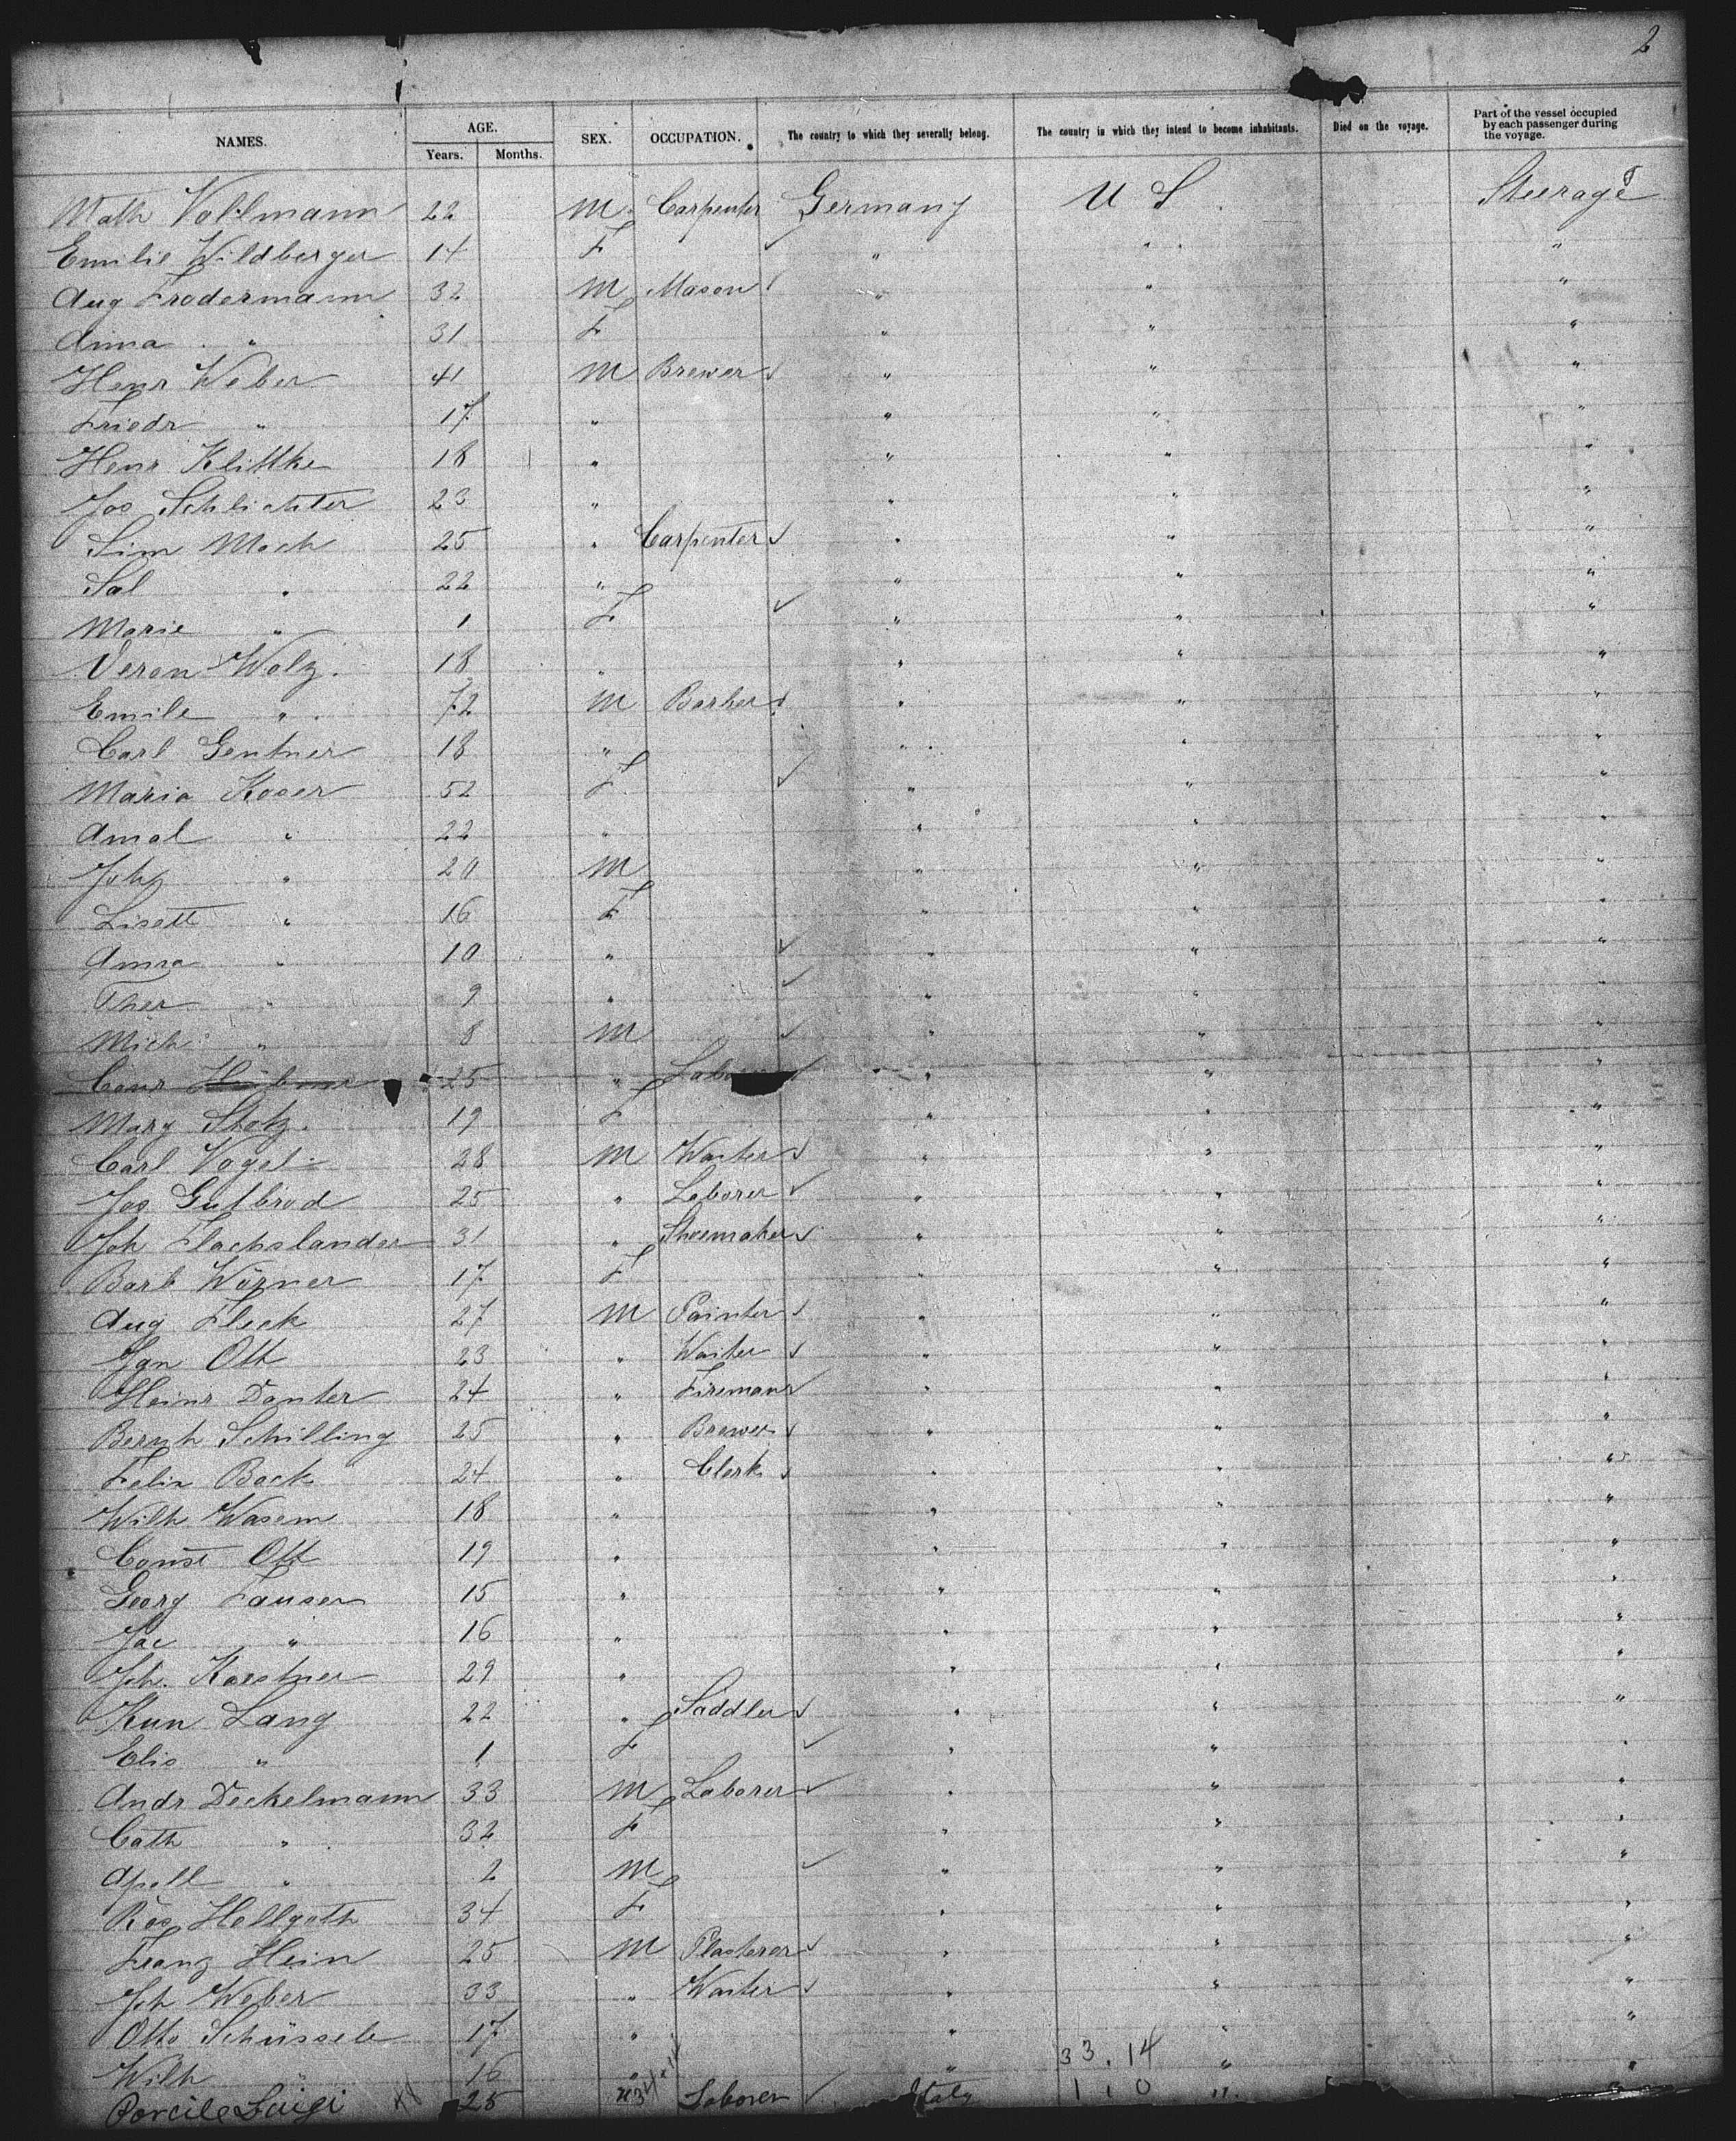 2
NAMES. AGE. Years. Months. SEX. OCCUPATION. The country to which they severally belong. The country in which they intend to become inhabitants. Died on the voyage. Part of the vessel occupied by each passenger during the voyage.
Math Vollmann 22 M. Carpenter Germany U S Steerage
Emilie Wildberger 14 F ✓ " " "
Aug Frodermann 32 M Mason ✓ " " "
Anna " 31 F " " "
Henr Weber 41 M Brewer ✓ " " "
Friedr " 17 " " " "
Henr Klittke 18 " " " "
Jos Schlichter 23 " " " "
Sim Moch 25 " Carpenter ✓ " " "
Sal " 22 " " " "
Marie " 1 F ✓ " " "
Veron Wolz. 18 " " " "
Emile " 72 M Barber ✓ " " "
Carl Gentner 18 " " " "
Maria Koser 52 F ✓ " " "
Amal " 22 " " " "
Joh " 20 M " " "
Lisett " 16 F " " "
Anna " 10 " ✓ " " "
Ther " 9 " ✓ " " "
Mich " 8 M ✓ " " "
Conr 25 " ✓ " " "
Mary Stotz. 19 F " " "
Carl Vogel 28 M Waiter ✓ " " "
Jos Gutbrod 25 " Laborer ✓ " " "
Joh Flachslander 31 " Shoemaker ✓ " " "
Barb Wörner 17 F " " "
Aug Fleck 27 M Painter ✓ " " "
Ign Ott 23 " Waiter ✓ " " "
Heinr Danter 24 " Fireman ✓ " " "
Bernh Schilling 25 " Brewer ✓ " " "
Felix Bock 24 " Clerk ✓ " " "
Wilh Wasem 18 " " " "
Const Ott 19 " " " "
Georg Fauser 15 " " " "
Jac " 16 " " " "
Joh. Kaestner 29 " " " "
Kun Lang 22 " Saddler ✓ " " "
Elis " 1 F ✓ " " "
Andr Deckelmann 33 M Laborer ✓ " " "
Cath " 32 F " " "
Apell " 2 M ✓ " " "
Ros Hellgoth 34 F " " "
Franz Hein 25 M Plasterer ✓ " " "
Joh Weber 33 " Waiter ✓ " " "
Otto Schüssele 17 " " " "
Wilh " 16 " " 33.14 " "
Porcile Luigi 25 Laborer ✓ Italy 1.0 " "